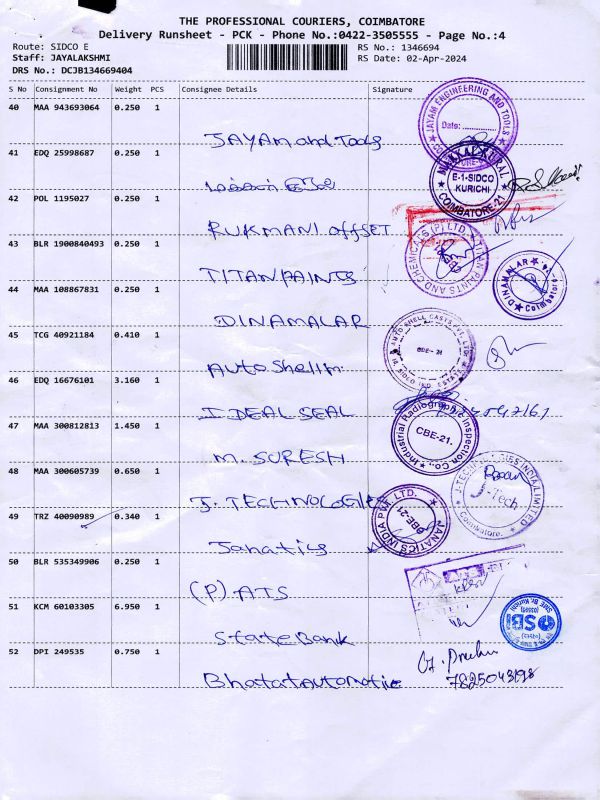 THE PROFESSIONAL COURIERS, COIMBATORE
Delivery Runsheet - PCK - Phone No.:0422-3505555 - Page No.:4
Route: SIDCO E
RS No.: 1346694
Staff: JAYALAKSHMI
RS Date: 02-Apr-2024
DRS No.: DCJB134669404
S No Consignment No Weight PCS Consignee Details Signature
40 MAA 943693064 0.250 1
JAYAM and Tools
JAYAM ENGINEERING AND TOOLS
Date:
41 EDQ 25998687 0.250 1
மக்கள் குரல்
MAKKAL KURAL
E-1-SIDCO
KURICHI
COIMBATORE-21
42 POL 1195027 0.250 1
RUKMANI offSET
43 BLR 1900840493 0.250 1
TITAN PAINTS
TITAN PAINTS AND CHEMICALS (P) LTD
44 MAA 108867831 0.250 1
DINAMALAR
DINAMALAR
Coimbatore
45 TCG 40921184 0.410 1
Auto Shell
AUTO SHELL CASTS PVT. LTD.
CBE- 21
SIDCO IND. ESTATE
46 EDQ 16676101 3.160 1
IDEAL SEAL
47 MAA 300812813 1.450 1
M. SURESH
Industrial Radiographic Inspection Co.,
CBE-21.
48 MAA 300605739 0.650 1
J. TECHNOLOGIES
J-TECHNOLOGIES INDIA LIMITED
J-Tech
Coimbatore.
49 TRZ 40090989 0.340 1
Janatics
JANATICS INDIA PVT. LTD.
CBE-21
50 BLR 535349906 0.250 1
(P) ATS
51 KCM 60103305 6.950 1
State Bank
SBI
SME Br. Kurichi
52 DPI 249535 0.750 1
Bharat Automatic
7825043198